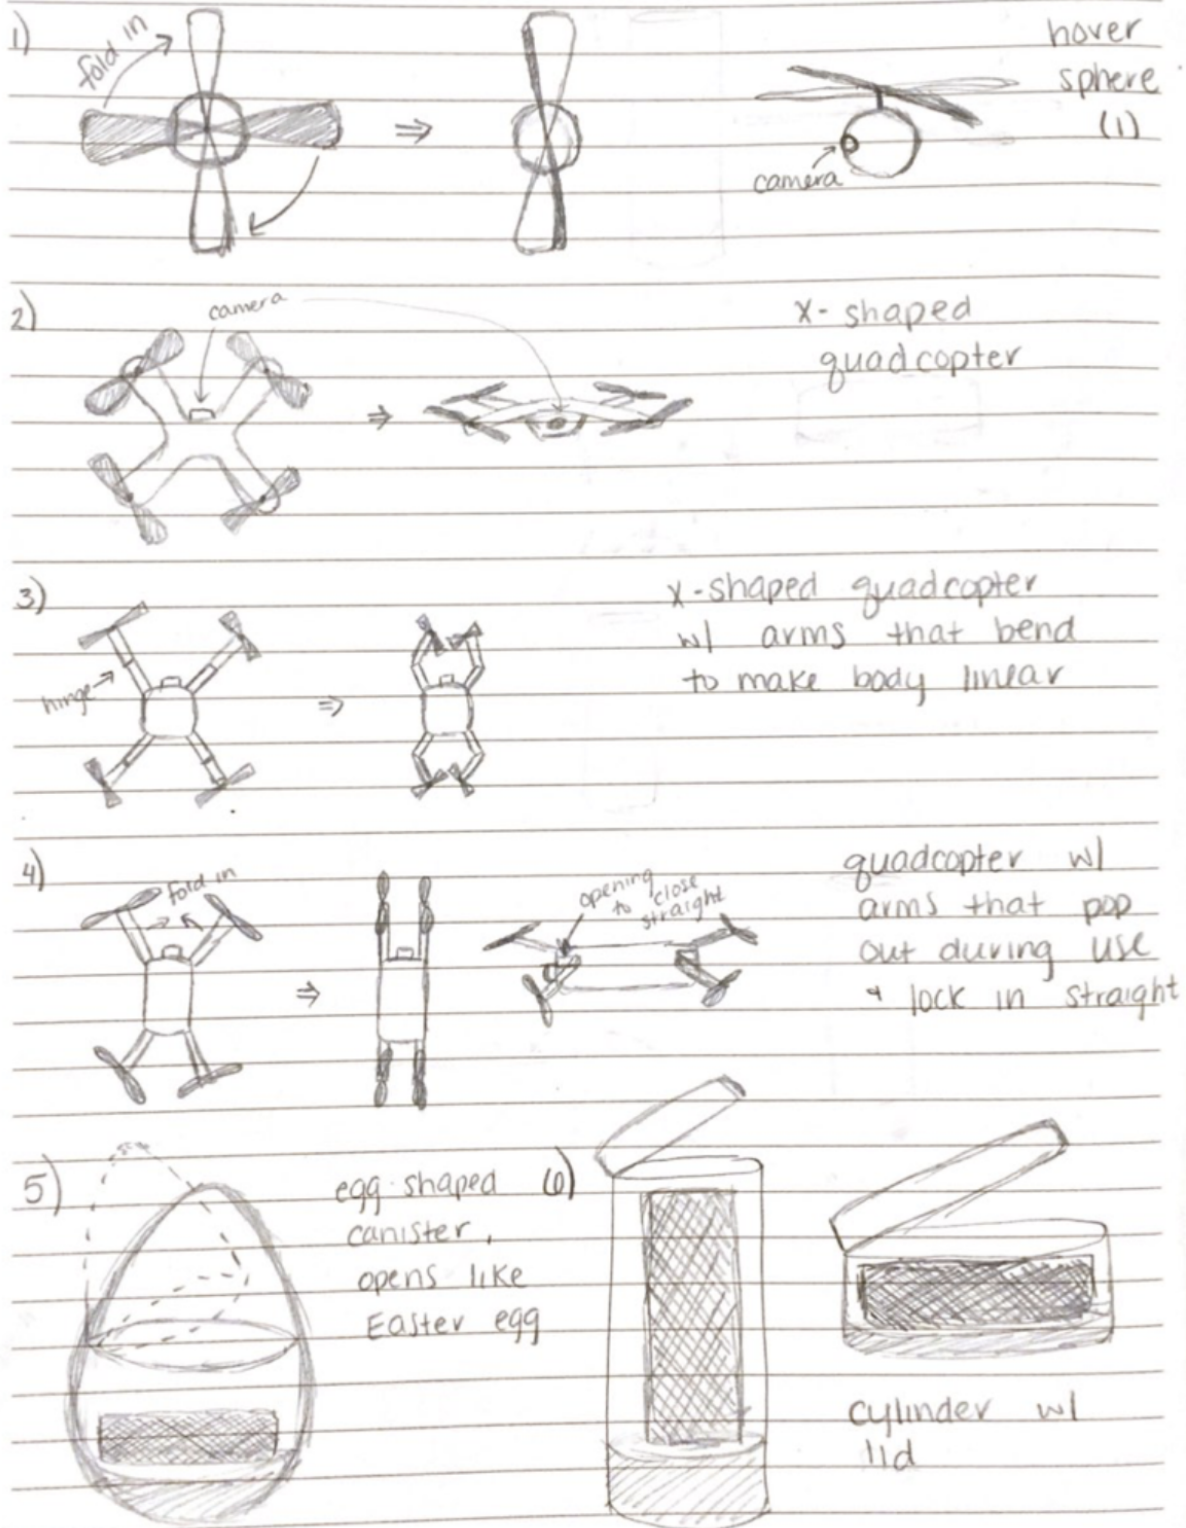 1)
fold in
hover
sphere
(1)
camera
2)
camera
X-shaped
quadcopter
3)
hinge
X-shaped quadcopter
w/ arms that bend
to make body linear
4)
fold in
opening
to close
straight
quadcopter w/
arms that pop
out during use
& lock in straight
5)
egg-shaped
canister,
opens like
Easter egg
6)
cylinder w/
lid